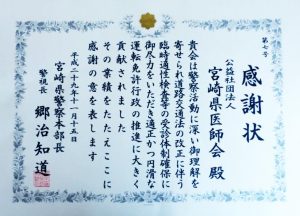 第七号
感謝状
公益社団法人
宮崎県医師会 殿
貴会は警察活動に深い御理解を
寄せられ道路交通法の改正に伴う
臨時適性検査等の受診体制確保に
御尽力をいただき適正かつ円滑な
運転免許行政の推進に大きく
貢献されました
その業績をたたえここに
感謝の意を表します
平成二十九年十一月十五日
宮崎県警察本部長
警視長 郷治知道